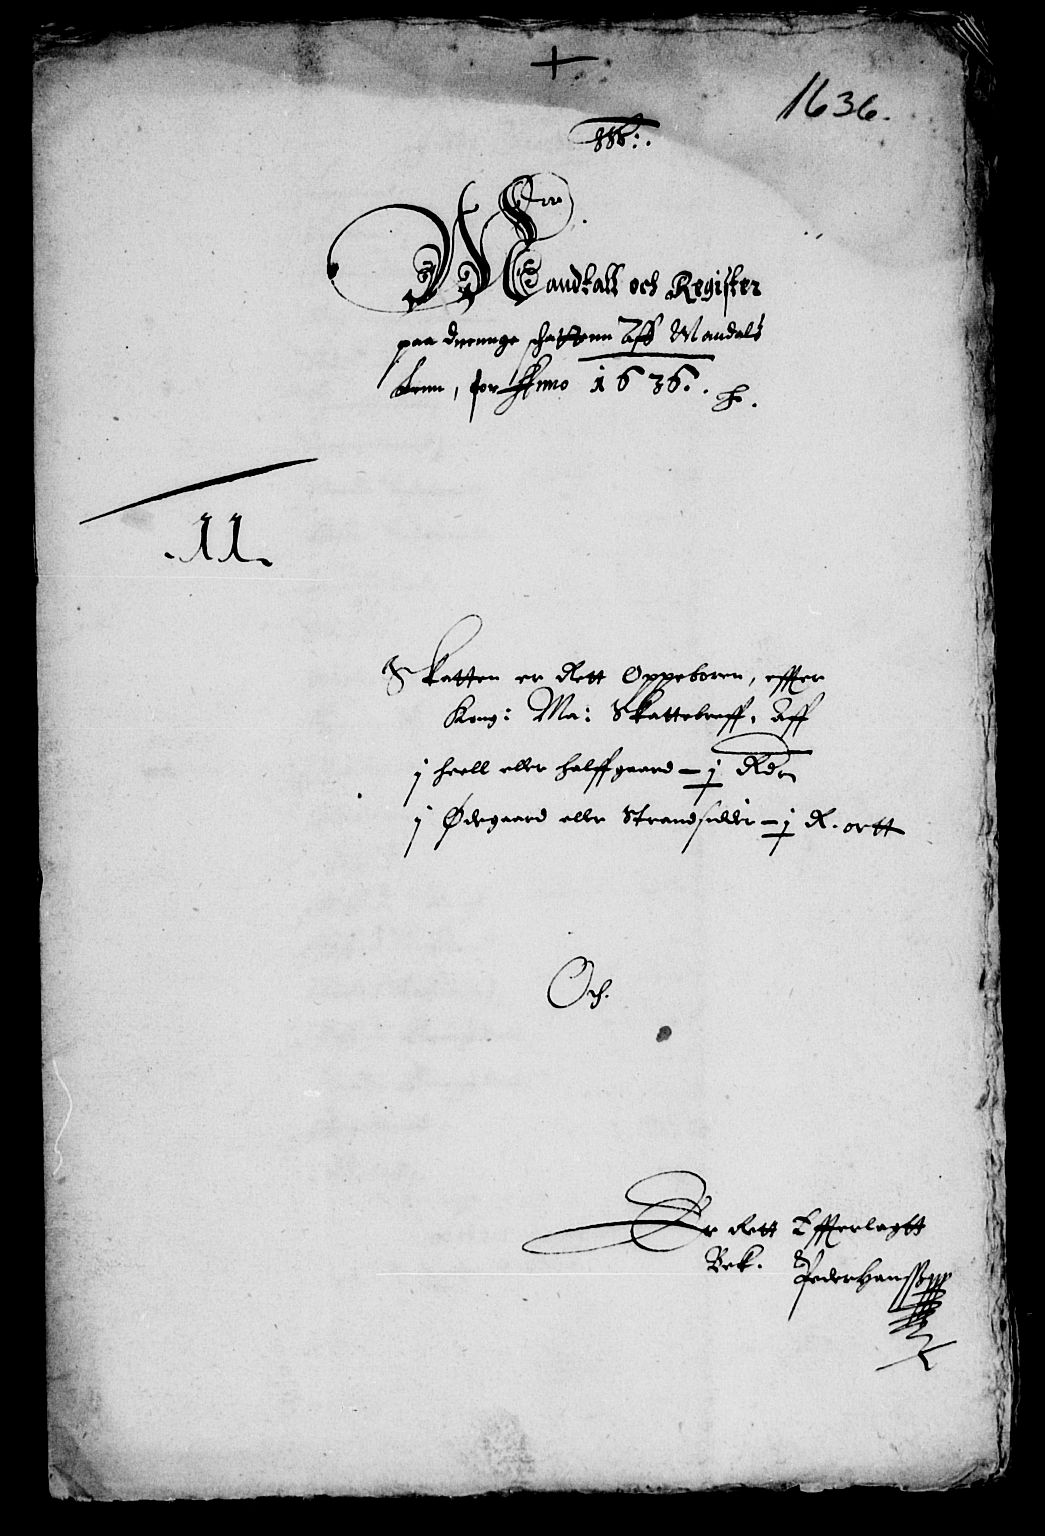 1636.
Mandtall och Register
paa dnenge schattenn Aff Mandals
Lenn, for Anno 1636.
11
Skatten er Rett Oppeboren, effter
Kong: Ma: Skattebreff, Aff
j heell eller halffgaard - j Rdr
j Ødegaard eller Strandsidder - j R. ortt
Och
Er Rett Efferlagtt
Bek. Peder Hanssøn